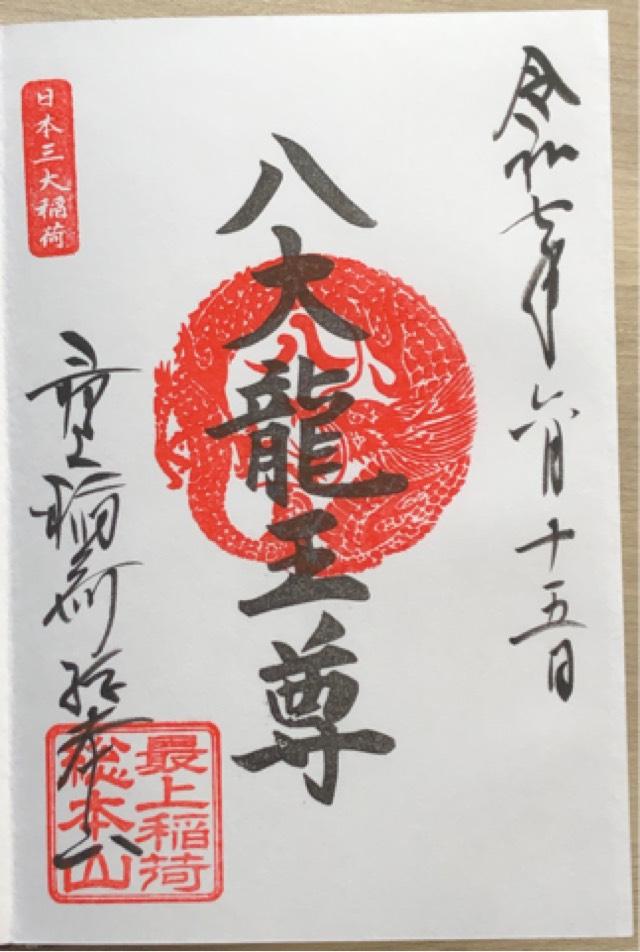 令和七年六月十五日
八大龍王尊
八大
日本三大稲荷
最上稲荷総本山
最上稲荷
総本山